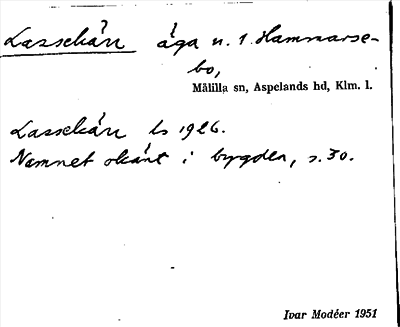 Lassekärr äga n. 1 Hammarse-
bo,
Målilla sn, Aspelands hd, Klm. l.
Lassekärr ls 1926.
Namnet okänt i bygden, s. 30.
Ivar Modéer 1951